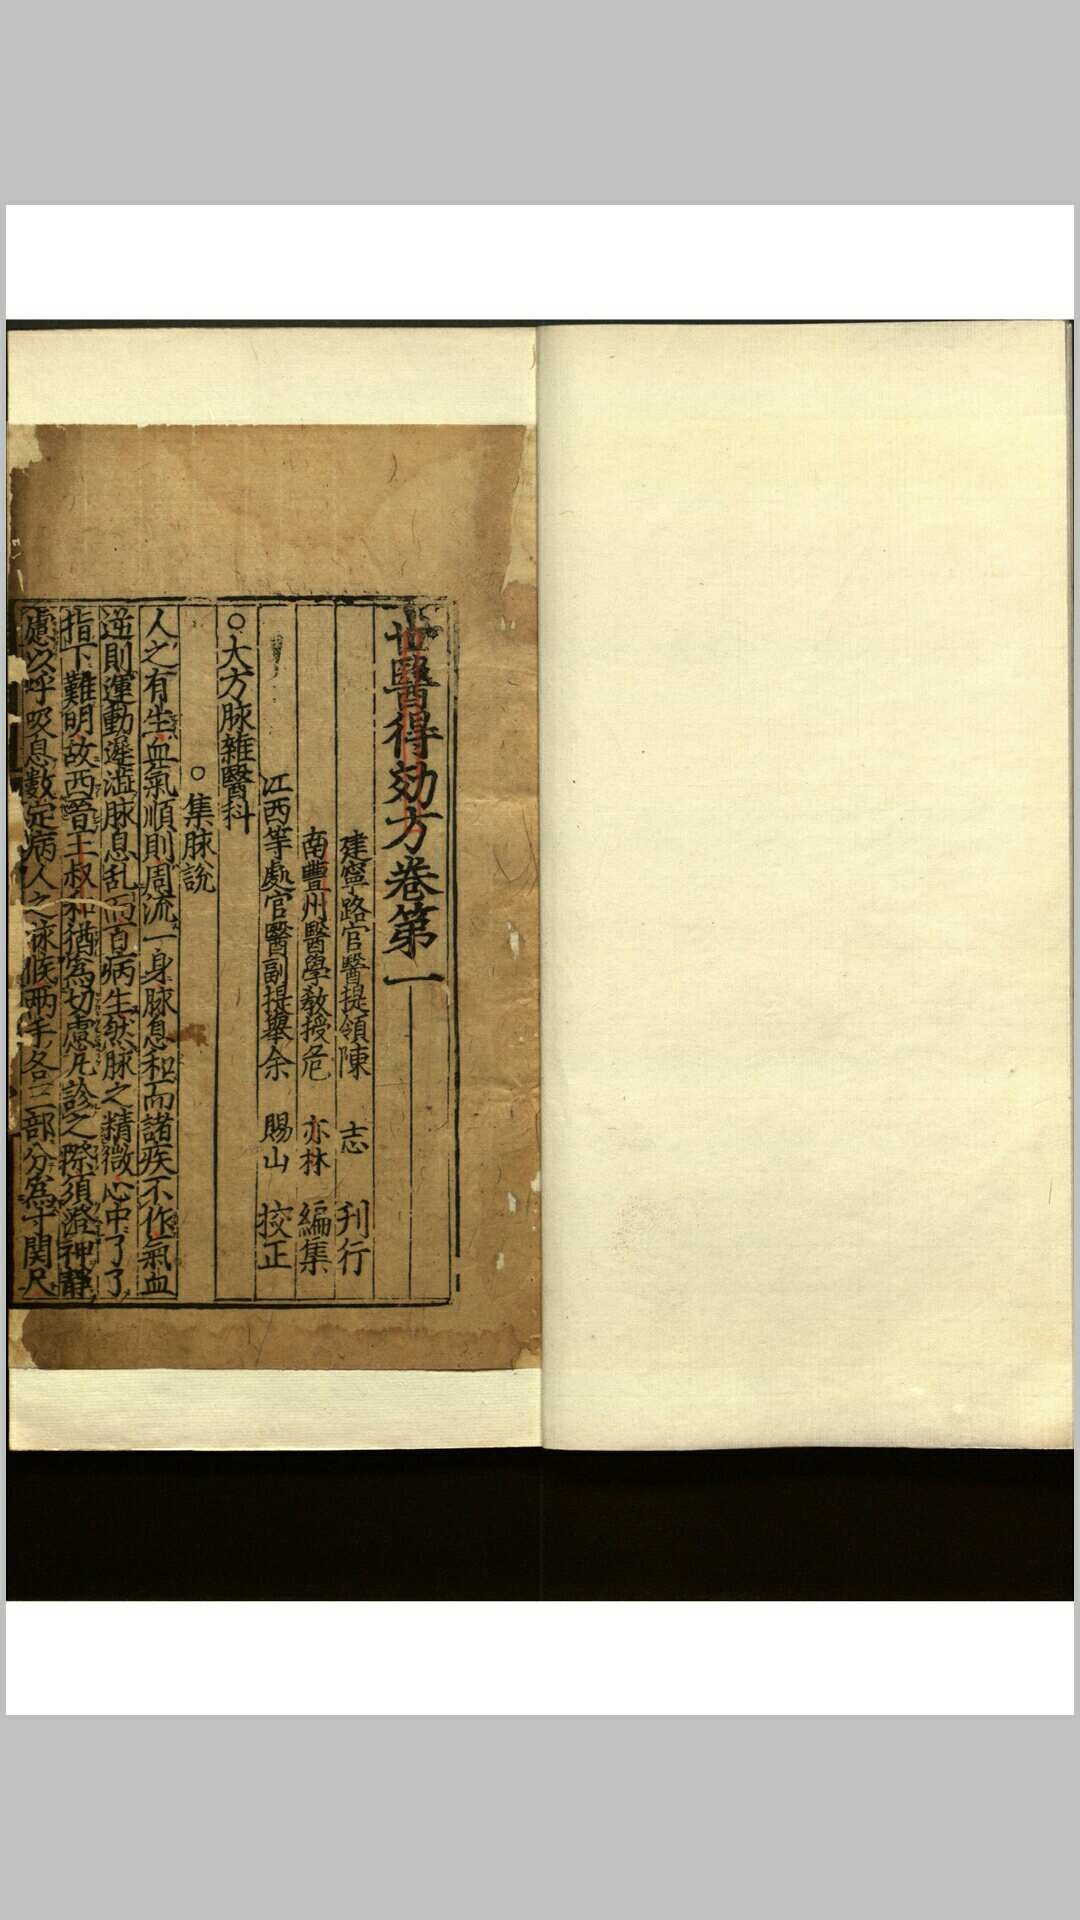 世醫得効方卷第一
建寧路官醫提領陳 志 刋行
南豐州醫學教授危 亦林 編集
江西等處官醫副提舉余 賜山 挍正
○大方脉雜醫科
○集脉說
人之有生血氣順則周流一身脉息和而諸疾不作氣血
逆則運動遲澁脉息乱而百病生然脉之精微心中了了
指下難明故西晉王叔和猶為切慮凢診之際須澄神靜
慮以呼吸息數定病人之脉候兩手各三部分為寸関尺